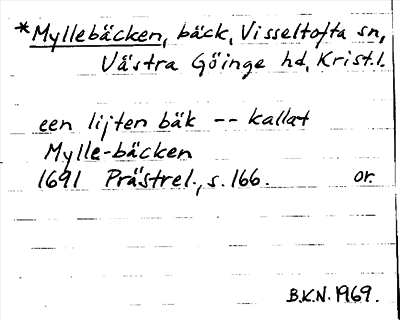 *Myllebäcken, bäck, Visseltofta sn,
Västra Göinge hd, Krist.l.
een lijten bäk -- kallat
Mylle-bäcken
1691 Prästrel., s. 166. or
B.K.N. 1969.